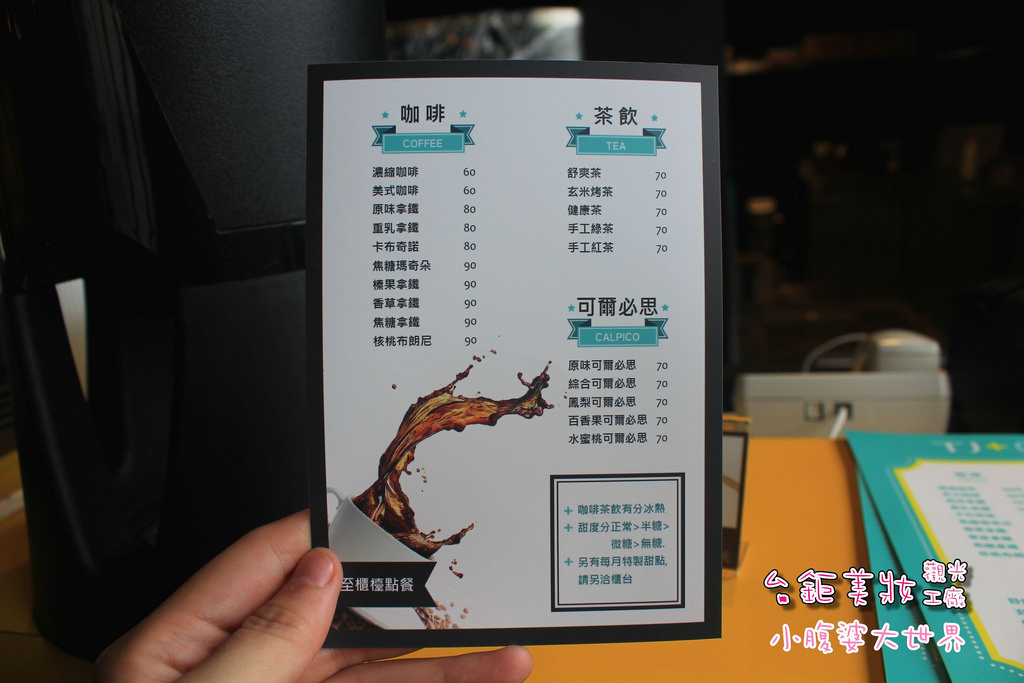 咖啡
COFFEE
濃縮咖啡 60
美式咖啡 60
原味拿鐵 80
重乳拿鐵 80
卡布奇諾 80
焦糖瑪奇朵 90
榛果拿鐵 90
香草拿鐵 90
焦糖拿鐵 90
核桃布朗尼 90
茶飲
TEA
舒爽茶 70
玄米烤茶 70
健康茶 70
手工綠茶 70
手工紅茶 70
可爾必思
CALPICO
原味可爾必思 70
綜合可爾必思 70
鳳梨可爾必思 70
百香果可爾必思 70
水蜜桃可爾必思 70
+ 咖啡茶飲有分冰熱
+ 甜度分正常>半糖>
微糖>無糖.
+ 另有每月特製甜點,
請另洽櫃台
至櫃檯點餐
台鉅美妝觀光工廠
小腹婆大世界